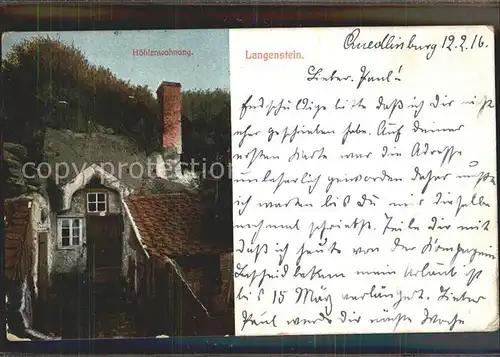 Höhlenwohnung.
Langenstein.
Quedlinburg 12.2.16.
Lieber Paul!
Entschuldige bitte daß ich Dir nicht
eher geschrieben habe. Auf deiner
ersten Karte war die Adresse
unleserlich geworden daher mußte
ich warten bis du mir dieselbe
noch mal schriebst. Teile dir mit
daß ich heute von der Kompagnie
Bescheid bekam mein Urlaub ist
bis 15 März verlängert. Lieber
Paul werde dir nächste Woche
© copyright